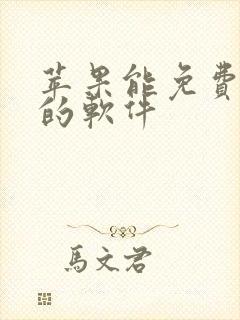 苹果能免費
的軟件
馬文君